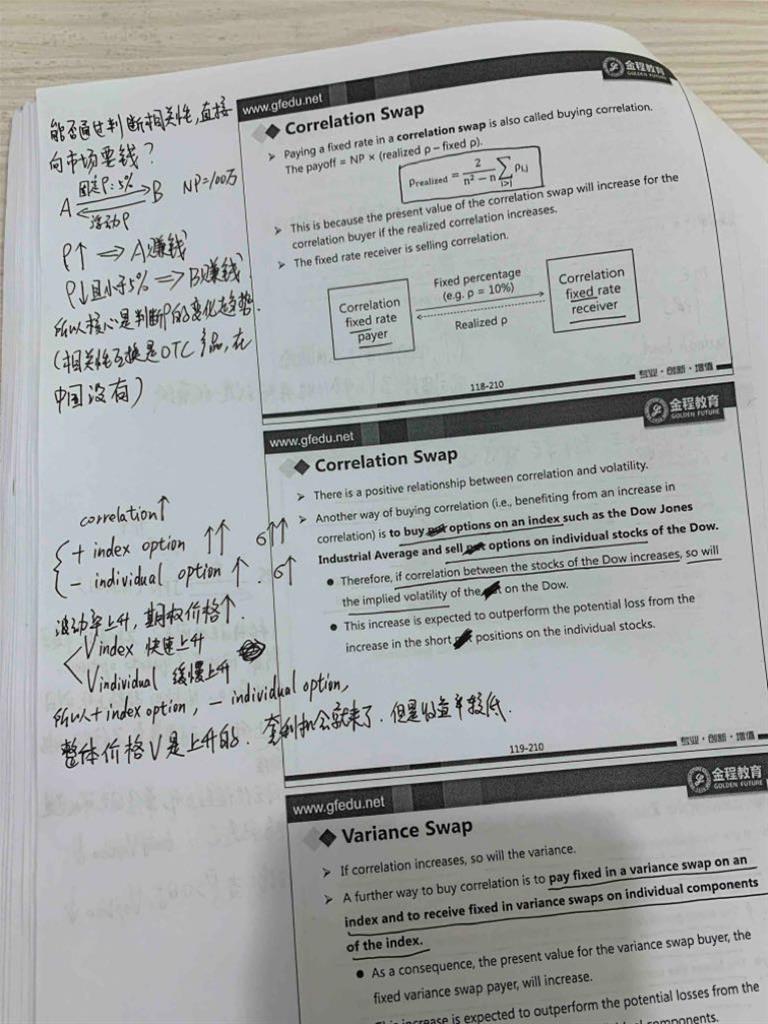 能否通过判断相关性,直接
向市场要钱?
固定ρ:5%
A B NP=100万
浮动ρ
ρ↑ ⇒ A赚钱
ρ↓且小于5% ⇒ B赚钱
所以核心是判断ρ的变化趋势.
(相关性互换是OTC产品,在
中国没有)
www.gfedu.net
金程教育
GOLDEN FUTURE
Correlation Swap
➢ Paying a fixed rate in a correlation swap is also called buying correlation.
The payoff = NP × (realized ρ – fixed ρ).
ρrealized = 2/(n² – n) ∑i>j ρi,j
➢ This is because the present value of the correlation swap will increase for the
correlation buyer if the realized correlation increases.
➢ The fixed rate receiver is selling correlation.
Correlation
fixed rate
payer
Fixed percentage
(e.g. ρ = 10%)
Realized ρ
Correlation
fixed rate
receiver
118-210
专业·创新·增值
www.gfedu.net
金程教育
GOLDEN FUTURE
Correlation Swap
➢ There is a positive relationship between correlation and volatility.
➢ Another way of buying correlation (i.e., benefiting from an increase in
correlation) is to buy options on an index such as the Dow Jones
Industrial Average and sell options on individual stocks of the Dow.
● Therefore, if correlation between the stocks of the Dow increases, so will
the implied volatility of the on the Dow.
● This increase is expected to outperform the potential loss from the
increase in the short positions on the individual stocks.
119-210
专业·创新·增值
correlation↑
+ index option ↑↑ σ↑↑
− individual option ↑. σ↑
波动率上升,期权价格↑.
Vindex 快速上升
Vindividual 缓慢上升
所以+ index option, − individual option,
整体价格V是上升的. 套利机会就来了. 但是收益率较低.
www.gfedu.net
金程教育
GOLDEN FUTURE
Variance Swap
➢ If correlation increases, so will the variance.
➢ A further way to buy correlation is to pay fixed in a variance swap on an
index and to receive fixed in variance swaps on individual components
of the index.
● As a consequence, the present value for the variance swap buyer, the
fixed variance swap payer, will increase.
increase is expected to outperform the potential losses from the
components.